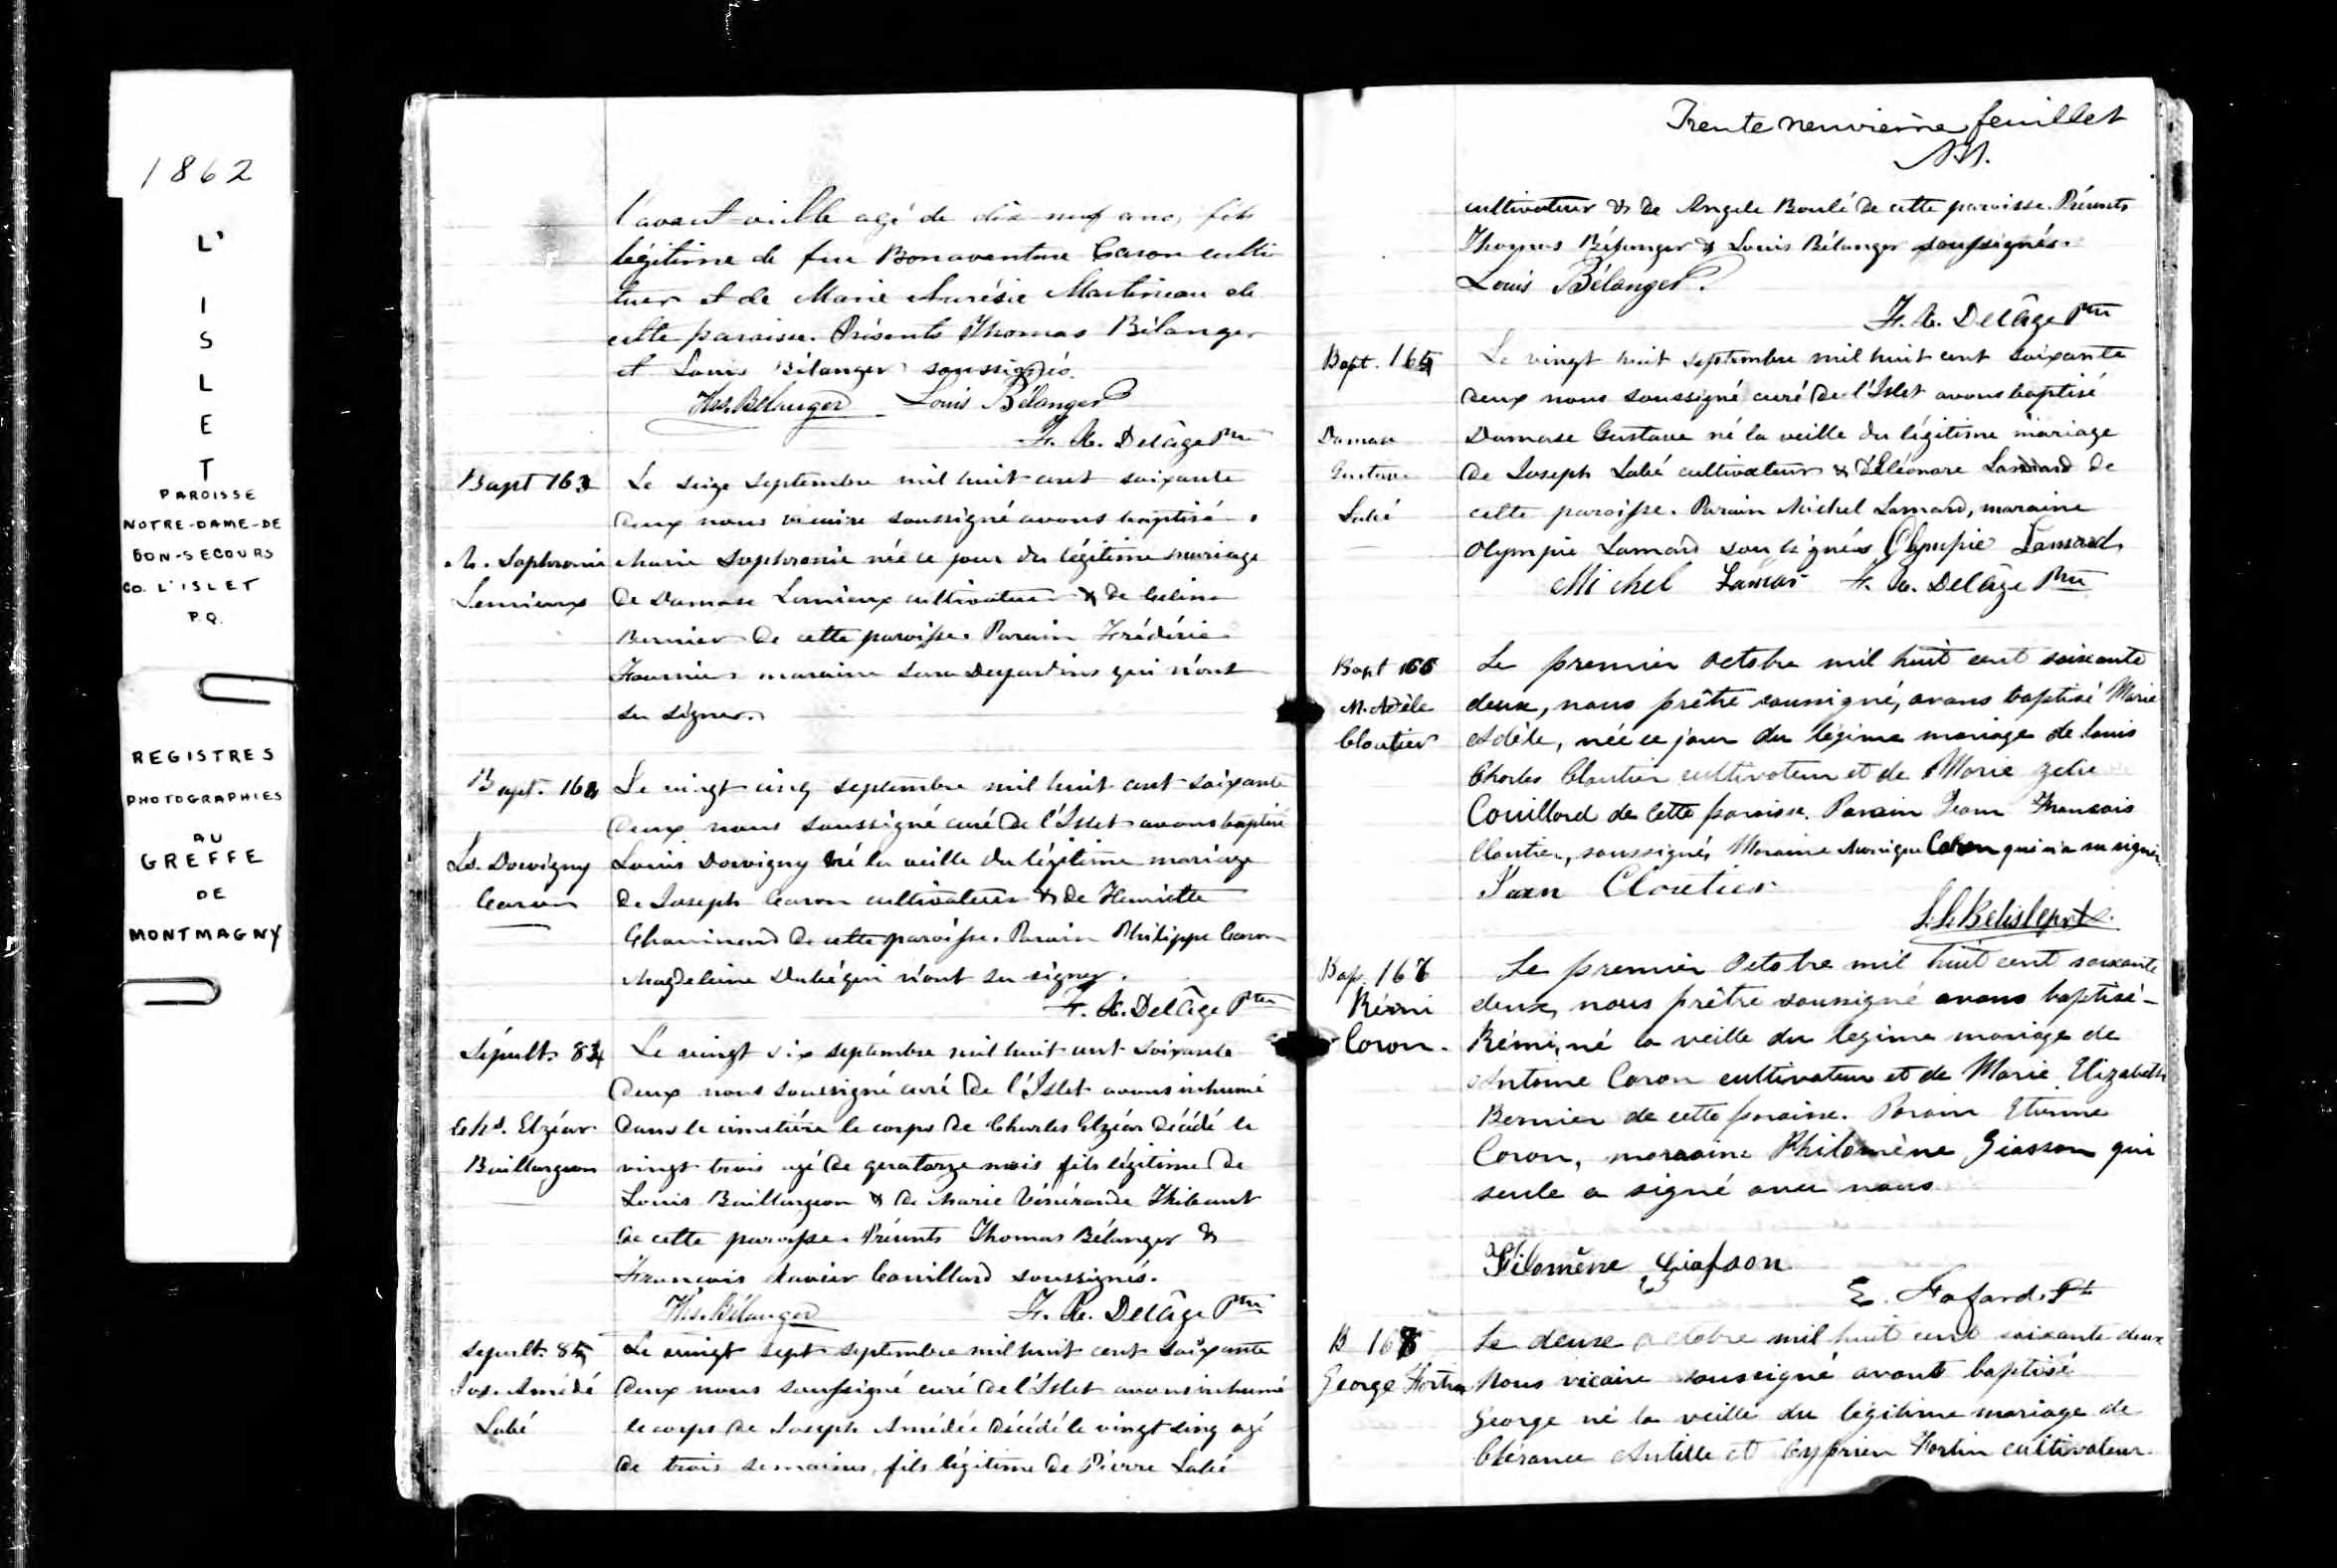 1862
L'
I
S
L
E
T
PAROISSE
NOTRE-DAME-DE
BON-SECOURS
CO. L'ISLET
P.Q.
REGISTRES
PHOTOGRAPHIES
AU
GREFFE
DE
MONTMAGNY
l'avant-veille agé de dix-neuf ans, fils
légitime de feu Bonaventure Caron culti
tuer et de Marie Aurésie Martineau de
cette paroisse. Présents Thomas Bélanger
et Louis Bélanger soussignés.
Ths. Bélanger Louis Bélanger
F. X. Delâge Ptre
Bapt 163
Le seize septembre mil huit cent soixante
deux nous vicaire soussigné avons baptisé
M. Sophronie
Lemieux
Marie Sophronie née ce jour du légitime mariage
de Damase Lemieux cultivateur & de Celina
Bernier de cette paroisse. Parain Frédéric
Fournier maraine Sara Dejardins qui n'ont
su signer.
Bapt. 164
Le vingt cinq septembre mil huit cent soixante
deux nous soussigné curé de l'Islet avons baptisé
Ls. Dorvigny
Caron
Louis Dorvigny né la veille du légitime mariage
de Joseph Caron cultivateur & de Henriette
Chouinard de cette paroisse. Parain Philippe Caron
Magdeleine Dubé qui n'ont su signer.
F. X. Delâge Ptre
Sépult. 84
Le vingt six septembre mil huit cent soixante
deux nous soussigné curé de l'Islet avons inhumé
Chs. Elzéar
Baillargeon
dans le cimetière le corps de Charles Elzéar décédé le
vingt trois agé de quatorze mois fils légitime de
Louis Baillargeon & de Marie Vénérande Thibaut
de cette paroisse. Présents Thomas Bélanger &
François Xavier Couillard soussignés.
Ths. Bélanger F. X. Delâge Ptre
Sépult. 85
Jos. Amédé
Labé
Le vingt sept septembre mil huit cent soixante
deux nous soussigné curé de l'Islet avons inhumé
le corps de Joseph Amédée décédé le vingt cinq agé
de trois semaines, fils légitime de Pierre Labé
Trente neuvième feuillet
cultivateur & de Angele Boulé de cette paroisse. Présents
Thomas Bélanger & Louis Bélanger soussignés.
Louis Bélanger
F. X. Delâge Ptre
Bapt. 165
Le vingt huit septembre mil huit cent soixante
deux nous soussigné curé de l'Islet avons baptisé
Damase
Gustave
Labé
Damase Gustave né la veille du légitime mariage
de Joseph Labé cultivateur & d'Eléonore Lamard de
cette paroisse. Parain Michel Lamard, maraine
Olympie Lamard soussignés Olympie Lamard
Michel Lamar F. X. Delâge Ptre
Bapt 166
M. Adèle
Cloutier
Le premier Octobre mil huit cent soixante
deux, nous prêtre soussigné, avons baptisé Marie
Adèle, née ce jour du légime mariage de Louis
Charles Cloutier cultivateur et de Marie Zelie
Couillard de cette paroisse. Parain Jean François
Cloutier, soussigné, Maraine Monique Caron qui n'a su signer.
Jaen Cloutier
Bap. 167
Rémi
Caron.
Le premier Octobre mil huit cent soixante
deux, nous prêtre soussigné avons baptisé
Rémi, né la veille du légime mariage de
Antoine Caron cultivateur et de Marie Elizabeth
Bernier de cette paroisse. Parain Etienne
Caron, maraine Philomène Giasson qui
seule a signé avec nous
Filomène Giasson
E. Fafard. Pt
B 168
George Fortin
Le deuxe octobre mil huit cent soixante deux
Nous vicaire soussigné avons baptisé
George né la veille du légitime mariage de
Clérance Antille et Cyprien Fortin cultivateur